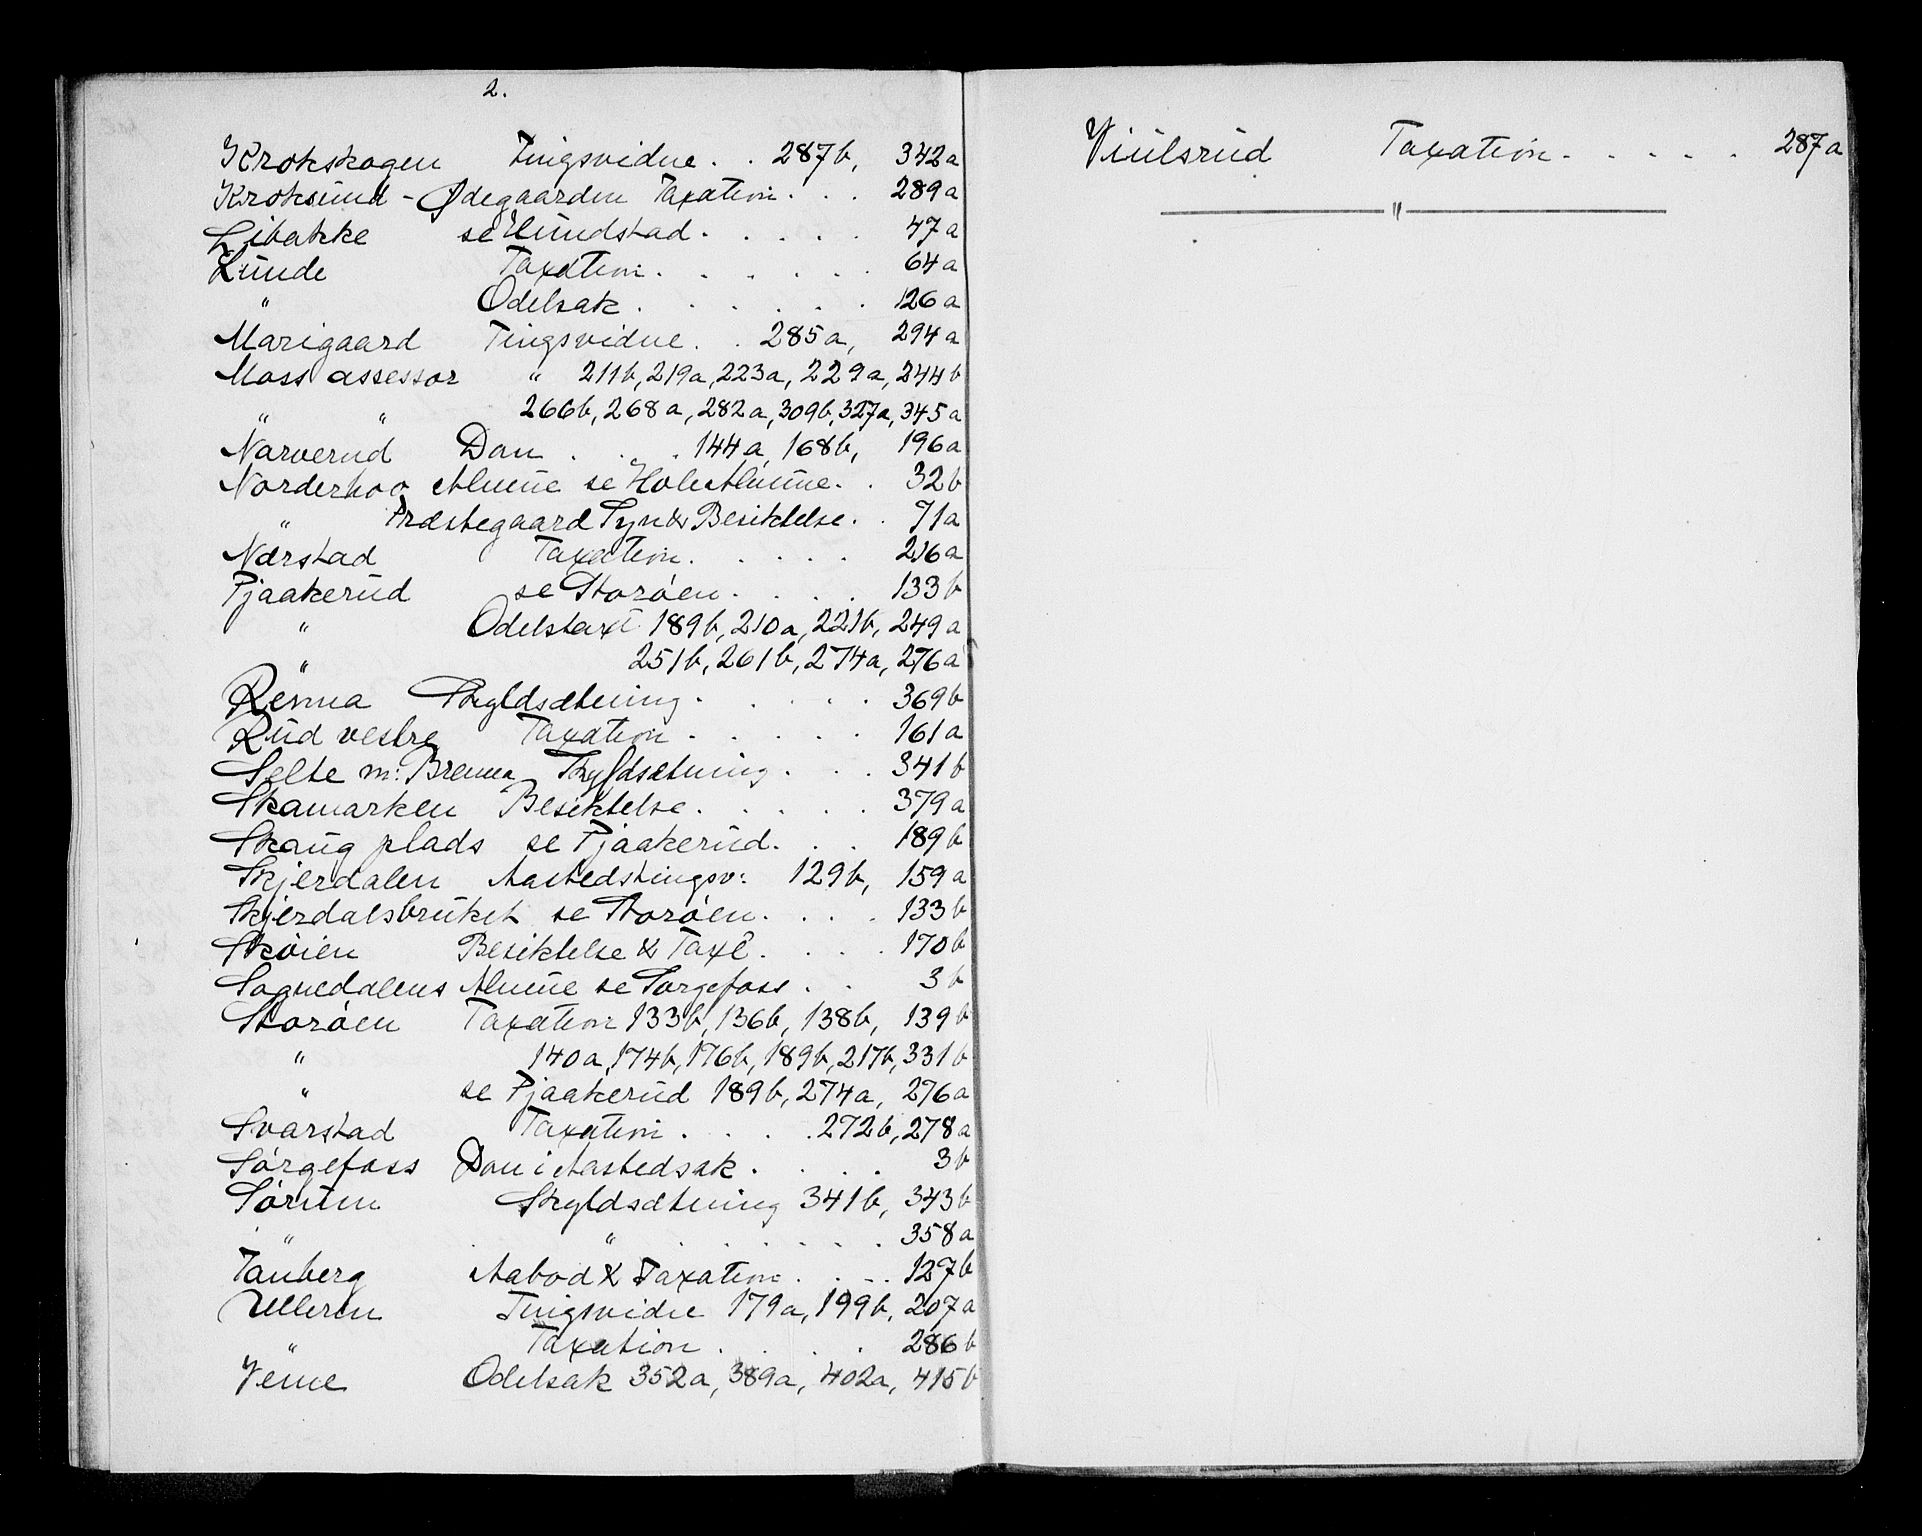 2.
Krokskogen Tingsvidne . . 287b, 342a
Kroksund - Ødegaarden Taxation . . . 289a
Libakke se Hundstad . . . . . 47a
Lunde Taxation . . . . . . 64a
" Odelsak . . . . . . 126a
Marigaard Tingsvidne . . 285a, 294a
Moss assessor " 211b, 219a, 223a, 229a, 244b
" " 266b, 268a, 282a, 309b, 327a, 345a
Narverud Dom . . . 144a, 168b, 196a
Norderhov Almue se Hole Almue . . 32b
" Præstegaard Syn & Besiktelse . . 71a
Nærstad Taxation . . . . . 216a
Pjaakerud se Storøen . . . . 133b
" Odelstaxt 189b, 210a, 221b, 249a
" 251b, 261b, 274a, 276a
Renna Skyldsætning . . . . . 369b
Rud vestre Taxation . . . . . 161a
Selte m: Brenna Skyldsætning . . . 341b
Skamarken Besiktelse . . . . . 379a
Skaug plads se Pjaakerud . . . 189b
Skjerdalen Aastedstingsv: 129b, 159a
Skjerdalsbruket se Storøen . . . . 133b
Skøien Besiktelse & Taxt . . . . 170b
Sognedalens Almue se Sørgefoss . . 3b
Storøen Taxation 133b, 136b, 138b, 139b
" 140a, 174b, 176b, 189b, 217b, 331b
" se Pjaakerud 189b, 274a, 276a
Svarstad Taxation . . . . 272b, 278a
Sørgefoss Dom i Aastedsak . . . . 3b
Sørum Skyldsætning 341b, 343b
" " . . . . . . 358a
Tanberg Aabod & Taxation . . . . 127b
Ulleren Tingsvidne 179a, 199b, 207a
" Taxation . . . . 286b
Veme Odelsak 352a, 389a, 402a, 415b
Viulsrud Taxation . . . . . 287a
"